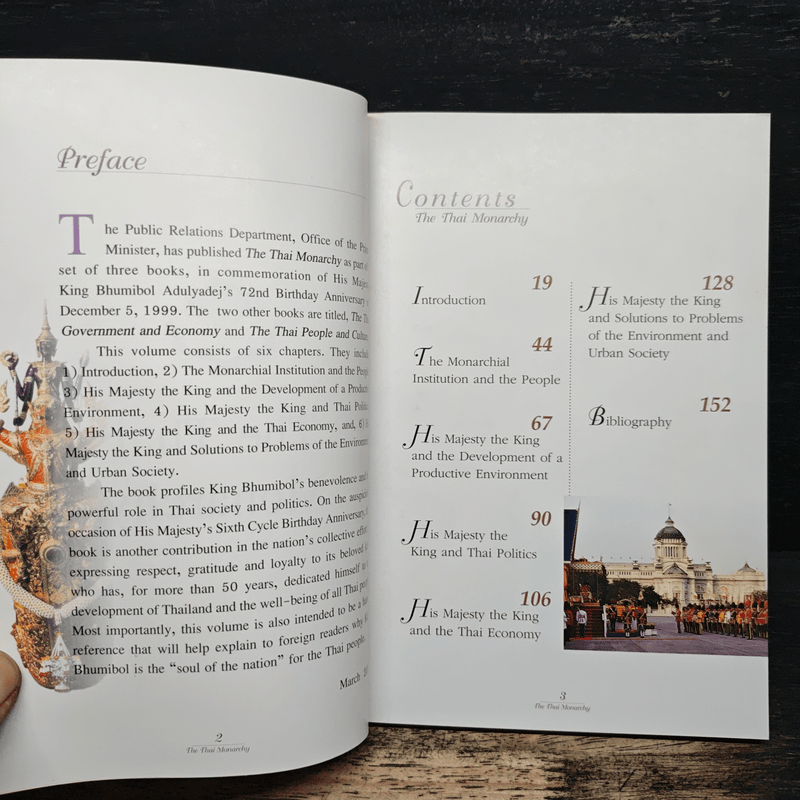 Preface
The Public Relations Department, Office of the
Minister, has published The Thai Monarchy as part
set of three books, in commemoration of His
King Bhumibol Adulyadej's 72nd Birthday Anniversary
December 5, 1999. The two other books are titled,
Government and Economy and The Thai People and
This volume consists of six chapters. They
1) Introduction, 2) The Monarchial Institution and the
3) His Majesty the King and the Development of a
Environment, 4) His Majesty the King and Thai
5) His Majesty the King and the Thai Economy, and, 6)
Majesty the King and Solutions to Problems of the
and Urban Society.
The book profiles King Bhumibol's benevolence and
powerful role in Thai society and politics. On the
occasion of His Majesty's Sixth Cycle Birthday Anniversary,
book is another contribution in the nation's collective
expressing respect, gratitude and loyalty to its beloved
who has, for more than 50 years, dedicated himself
development of Thailand and the well-being of all Thai
Most importantly, this volume is also intended to be a
reference that will help explain to foreign readers why
Bhumibol is the "soul of the nation" for the Thai people.
March
2
The Thai Monarchy
Contents
The Thai Monarchy
19
Introduction
44
The Monarchial
Institution and the People
67
His Majesty the King
and the Development of a
Productive Environment
90
His Majesty the
King and Thai Politics
106
His Majesty the King
and the Thai Economy
128
His Majesty the King
and Solutions to Problems
of the Environment and
Urban Society
152
Bibliography
3
The Thai Monarchy